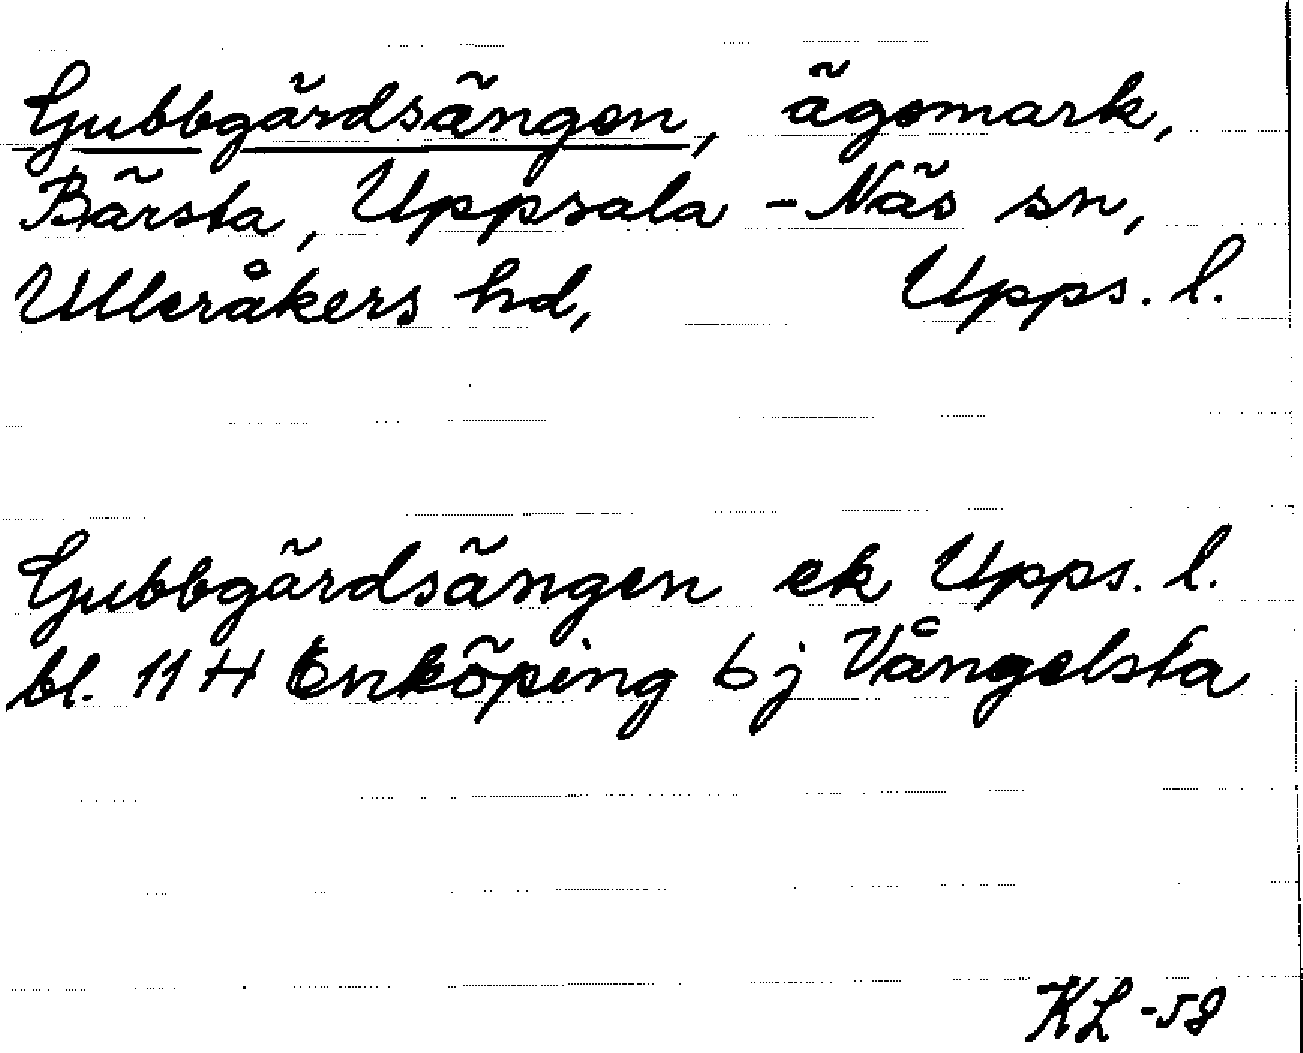 Gubbgärdsängen, ägomark,
Bärsta, Uppsala-Näs sn,
Ulleråkers hd, Upps. l.
Gubbgärdsängen ek Upps. l.
bl. 11 H Enköping 6 j Vångelsta
KL -58